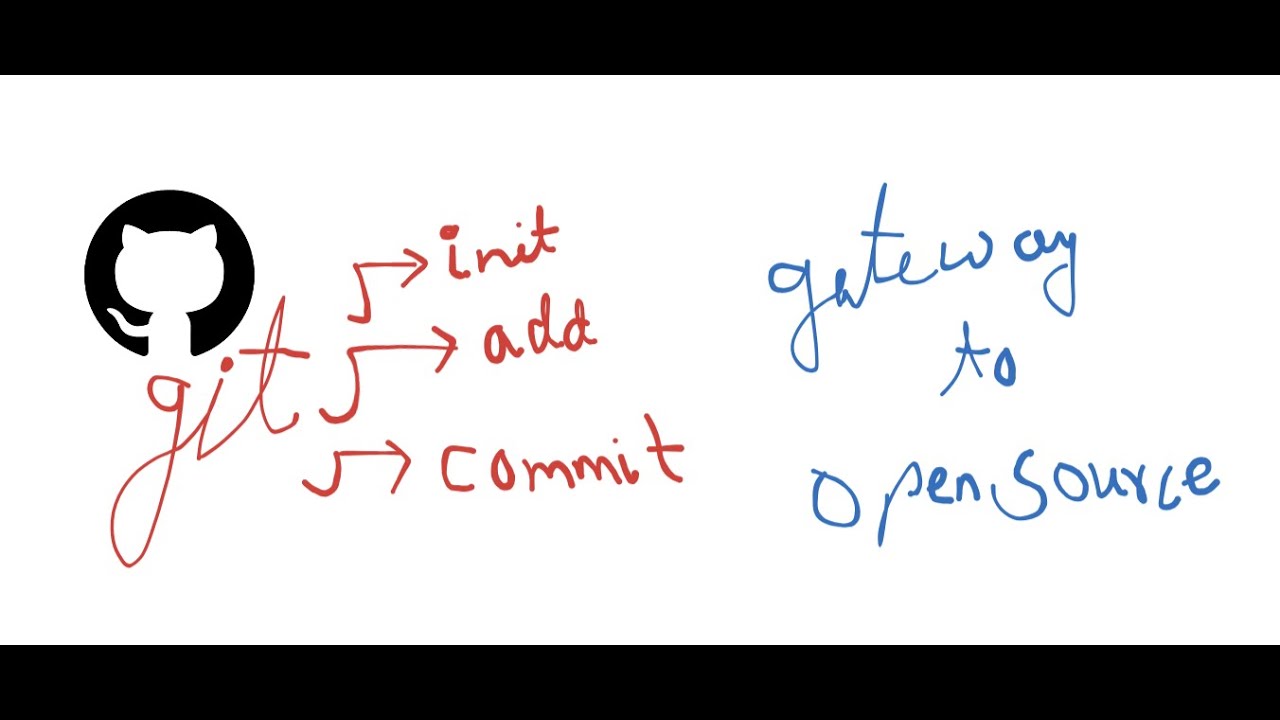 git
init
add
commit
gateway
to
opensource